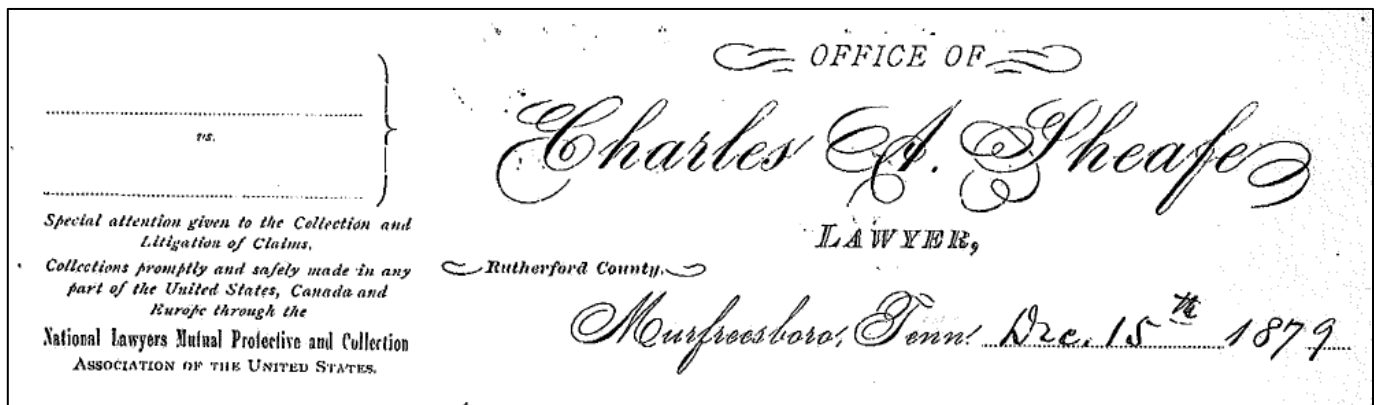 vs.
Special attention given to the Collection and
Litigation of Claims.
Collections promptly and safely made in any
part of the United States, Canada and
Europe through the
National Lawyers Mutual Protective and Collection
ASSOCIATION OF THE UNITED STATES.
OFFICE OF
Charles A. Sheafe
LAWYER,
Rutherford County.
Murfreesboro, Tenn. Dec. 15th 1879